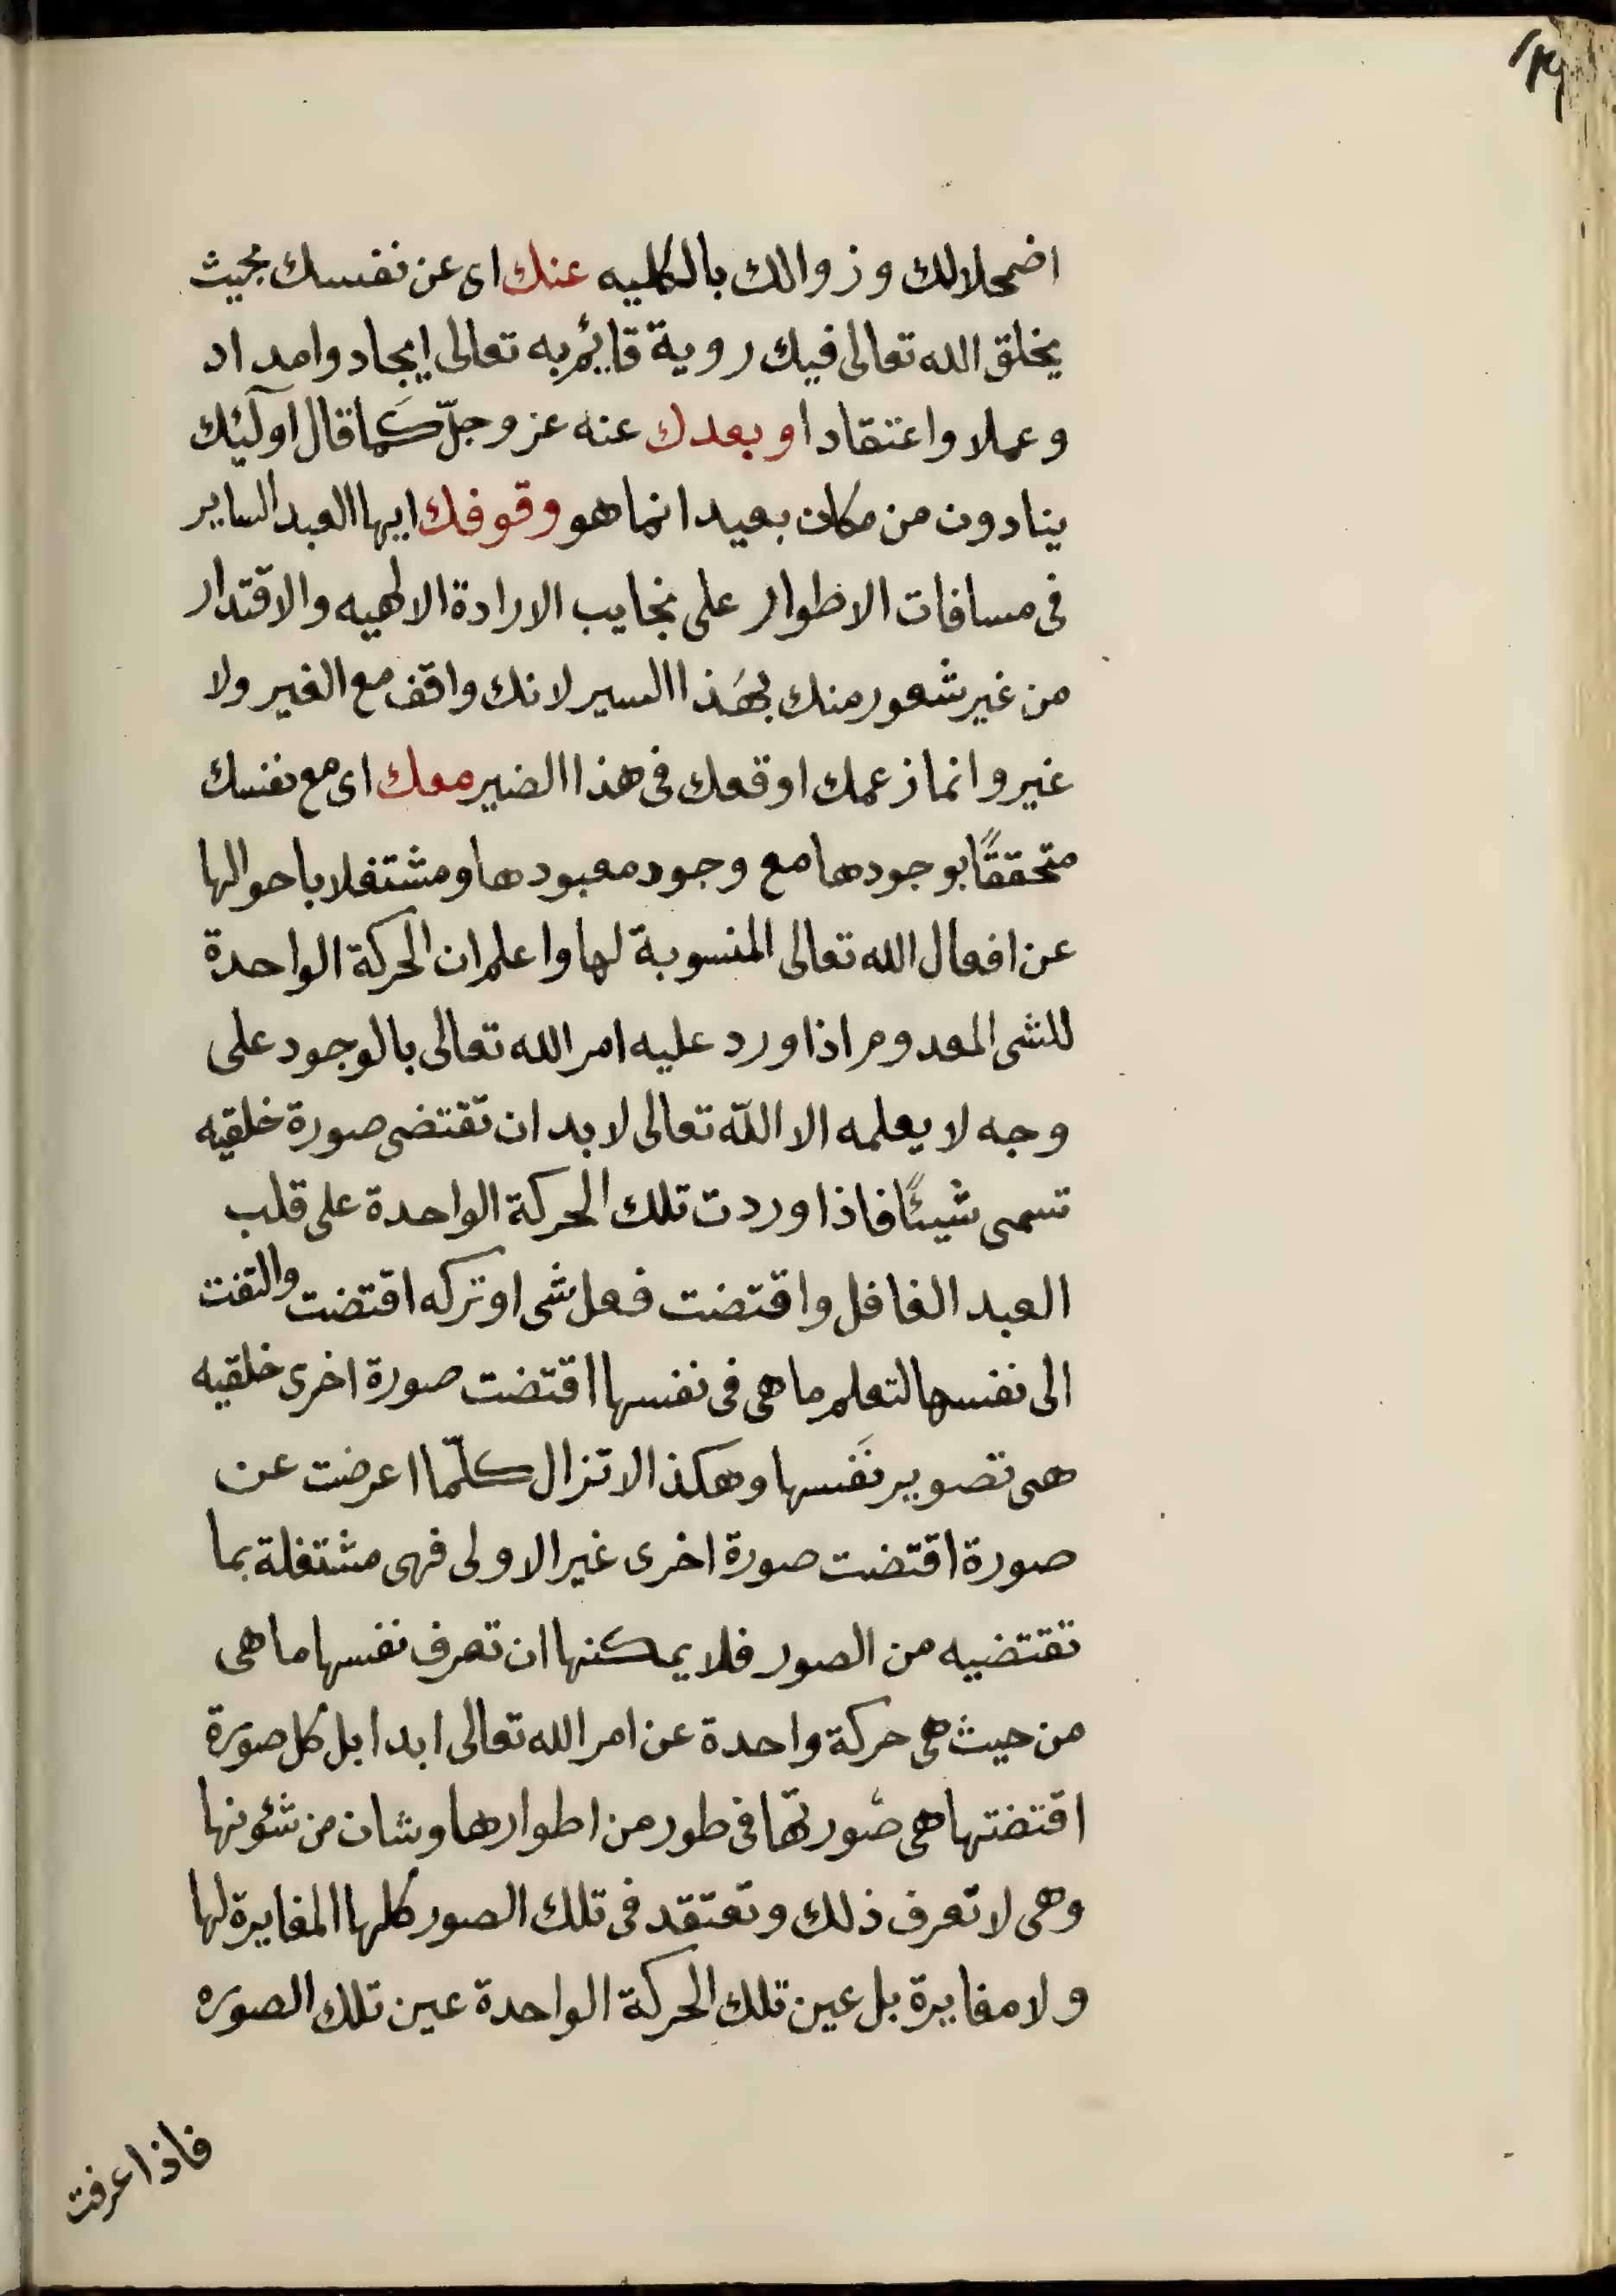 ١٩
اضمحلالك وزوالك بالكليه عنك اى عن نفسك بحيث
يخلق الله تعالى فيك روية قايم به تعالى ايجاد وامداد
وعملا واعتقادا وبعدك عنه عز وجلّ كَما قال اولٓئك
ينادون من مكان بعيد انما هو وقوفك ايها العبد الساير
فى مسافات الاطوار على نجايب الارادة الالهيه والاقتدار
من غير شعور منك بهَذا السير لانك واقف مع الغير ولا
غير وانما زعمك اوقعك فى هذا الضير معك اى مع نفسك
متحققًا بوجودها مع وجود معبودها ومشتغلا باحوالها
عن افعال الله تعالى المنسوبة لها واعلم ان الحركة الواحدة
للشى المعدوم اذا ورد عليه امر الله تعالى بالوجود على
وجه لا يعلمه الا اللّه تعالى لابد ان تقتضى صورة خلقيه
تسمى شيئًا فاذا وردت تلك الحركة الواحدة على قلب
العبد الغافل واقتضت فعل شى او تركه اقتضت والتفت
الى نفسها لتعلم ما هى فى نفسها اقتضت صورة اخرى خلقيه
هى تصوير نَفسها وهكذا لا تزال كلّما اعرضت عن
صورة اقتضت صورة اخرى غير الاولى فهى مشتغلة بما
تقتضيه من الصور فلا يمكنها ان تعرف نفسها ما هى
من حيث هى حركة واحدة عن امر الله تعالى ابدا بل كل صورة
اقتضتها هى صورتها فى طور من اطوارها وشان من شئونها
وهى لا تعرف ذلك وتعتقد فى تلك الصور كلها المغايرة لها
ولا مغايرة بل عين تلك الحركة الواحدة عين تلك الصوره
فاذا عرفت